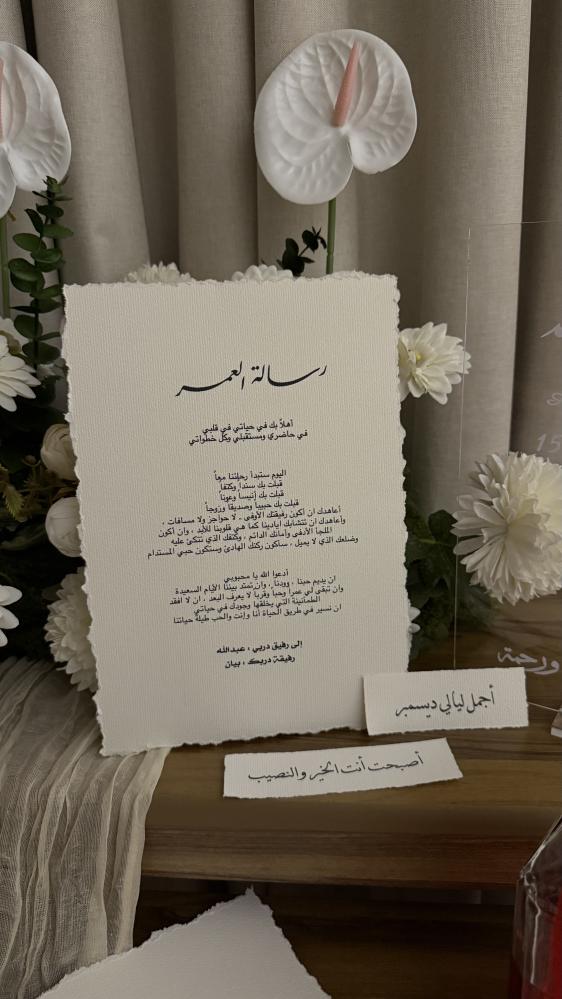 رسالة العمر
أهلاً بك في حياتي في قلبي
في حاضري ومستقبلي وكل خطواتي
اليوم ستبدأ رحلتنا معاً
قبلت بك سنداً وكتفاً
قبلت بك أنيساً وعوناً
قبلت بك حبيباً وصديقاً وزوجاً
أعاهدك ان أكون رفيقتك الأوفى ، لا حواجز ولا مسافات ،
وأعاهدك ان تتشابك أيادينا كما هي قلوبنا للأبد ، وان أكون
الملجأ الأدفى وأمانك الدائم ، وكتفك الذي تتكئ عليه
وضلعك الذي لا يميل ، سأكون ركنك الهادئ وستكون حبي المستدام
أدعوا الله يا محبوبي
ان يديم حبنا ، وودنا ، وان تمتد بيننا الأيام السعيدة
وان تبقى لي عمراً وحباً وقرباً لا يعرف البعد ، ان لا افقد
الطمأنينة التي يخلقها وجودك في حياتي
ان نسير في طريق الحياة أنا وإنت والحب طيلة حياتنا
إلى رفيق دربي ، عبدالله
رفيقة دربك ، بيان
أجمل ليالي ديسمبر
أصبحت أنت الخير والنصيب
15
ورحمة